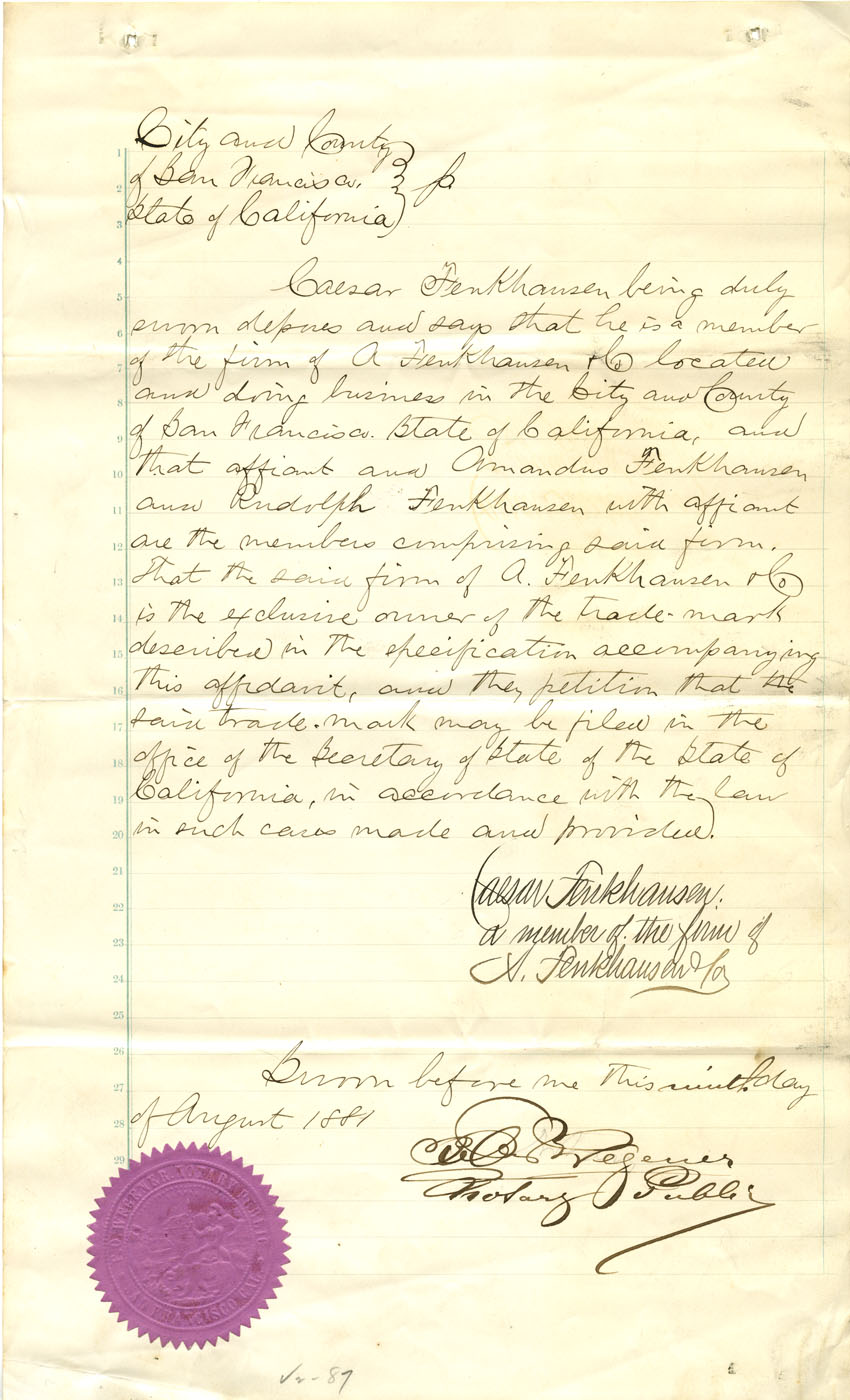 City and County
of San Francisco.
State of California
} ss
1
2
3
4
5
6
7
8
9
10
11
12
13
14
15
16
17
18
19
20
21
22
23
24
25
26
27
28
29
Caesar Fenkhausen being duly
sworn deposes and says that he is a member
of the firm of A Fenkhausen & Co located
and doing business in the City and County
of San Francisco. State of California, and
that affiant and Amandus Fenkhausen
and Rudolph Fenkhausen with affiant
are the members comprising said firm.
That the said firm of A. Fenkhausen & Co
is the exclusive owner of the trade-mark
described in the specification accompanying
this affidavit, and they petition that the
said trade-mark may be filed in the
office of the Secretary of State of the State of
California, in accordance with the law
in such cases made and provided.
Caesar Fenkhausen.
a member of the firm of
A. Fenkhausen & Co
Sworn before me this ninth day
of August 1881
Wegener
Notary Public
WEGENER NOTARY PUBLIC
FRANCISCO CAL.